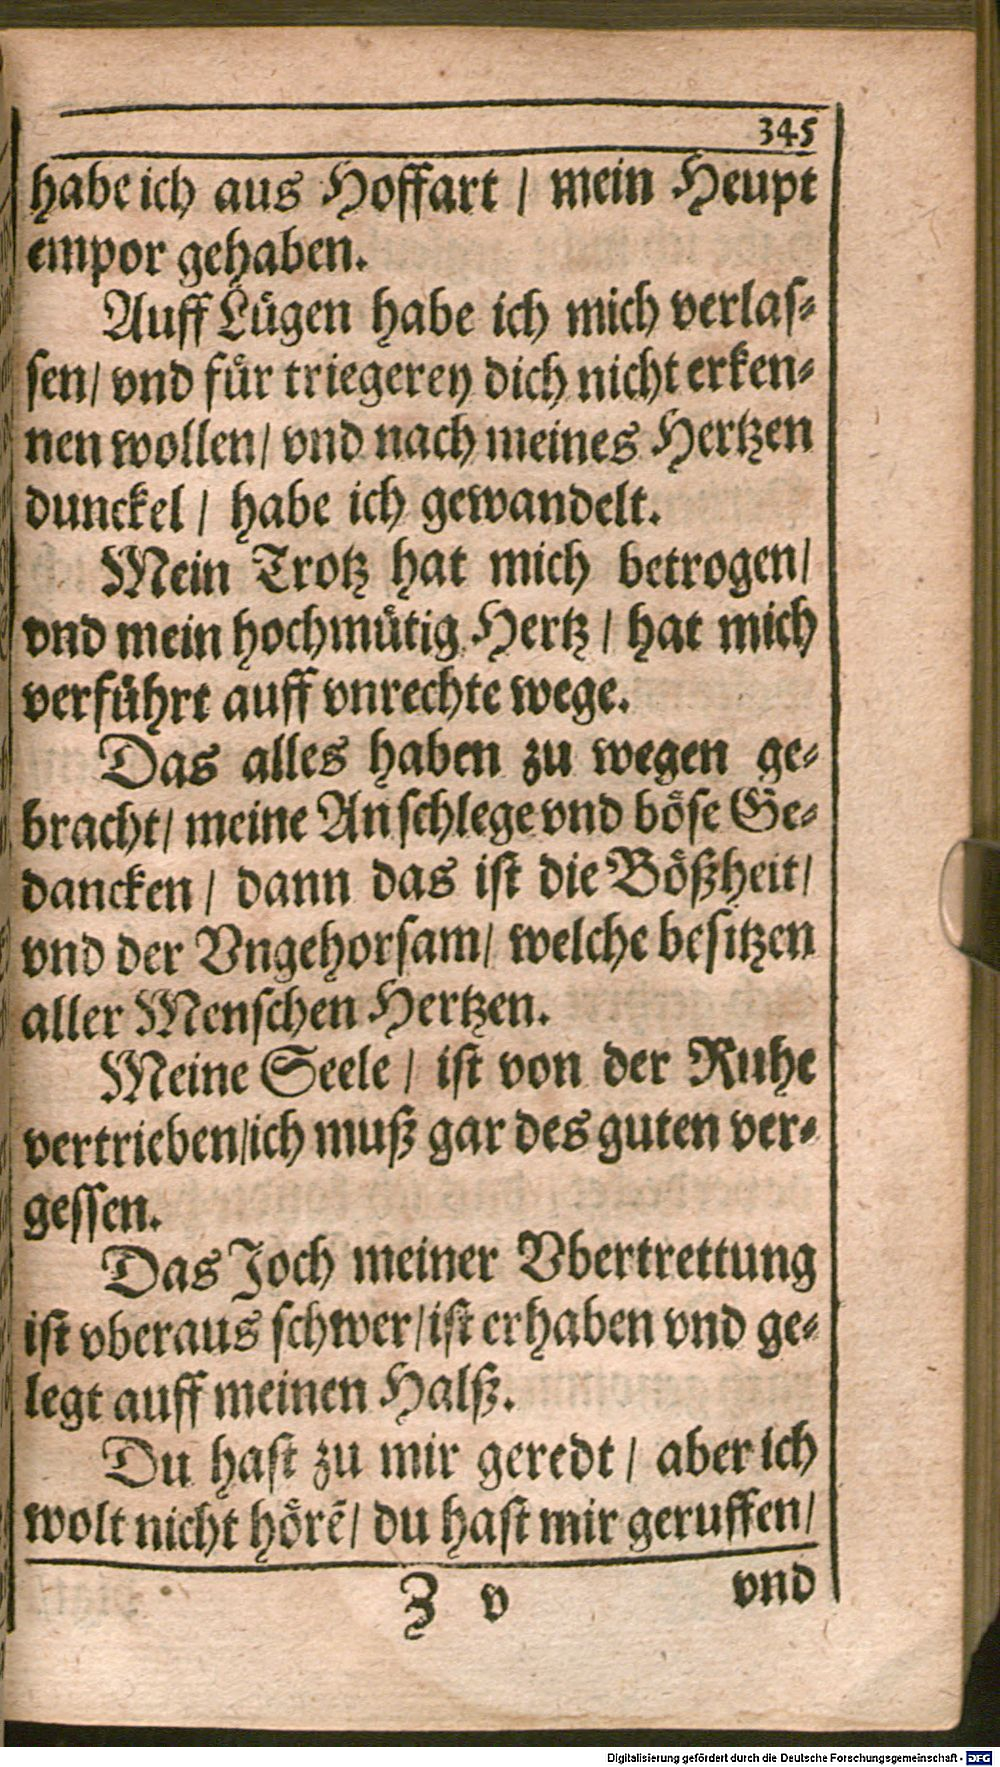 345
habe ich aus Hoffart / mein Heupt
empor gehaben.
Auff Lügen habe ich mich verlas-
sen/ vnd für triegerey dich nicht erken-
nen wollen/ vnd nach meines Hertzen
dunckel / habe ich gewandelt.
Mein Trotz hat mich betrogen/
vnd mein hochmütig Hertz / hat mich
verführt auff vnrechte wege.
Das alles haben zu wegen ge-
bracht/ meine Anschlege vnd böse Ge-
dancken / dann das ist die Bößheit/
vnd der Vngehorsam/ welche besitzen
aller Menschen Hertzen.
Meine Seele / ist von der Ruhe
vertrieben/ich muß gar des guten ver-
gessen.
Das Joch meiner Vbertrettung
ist vberaus schwer/ist erhaben vnd ge-
legt auff meinen Halß.
Du hast zu mir geredt / aber ich
wolt nicht hörẽ/ du hast mir geruffen/
Z v vnd
Digitalisierung gefördert durch die Deutsche Forschungsgemeinschaft - DFG